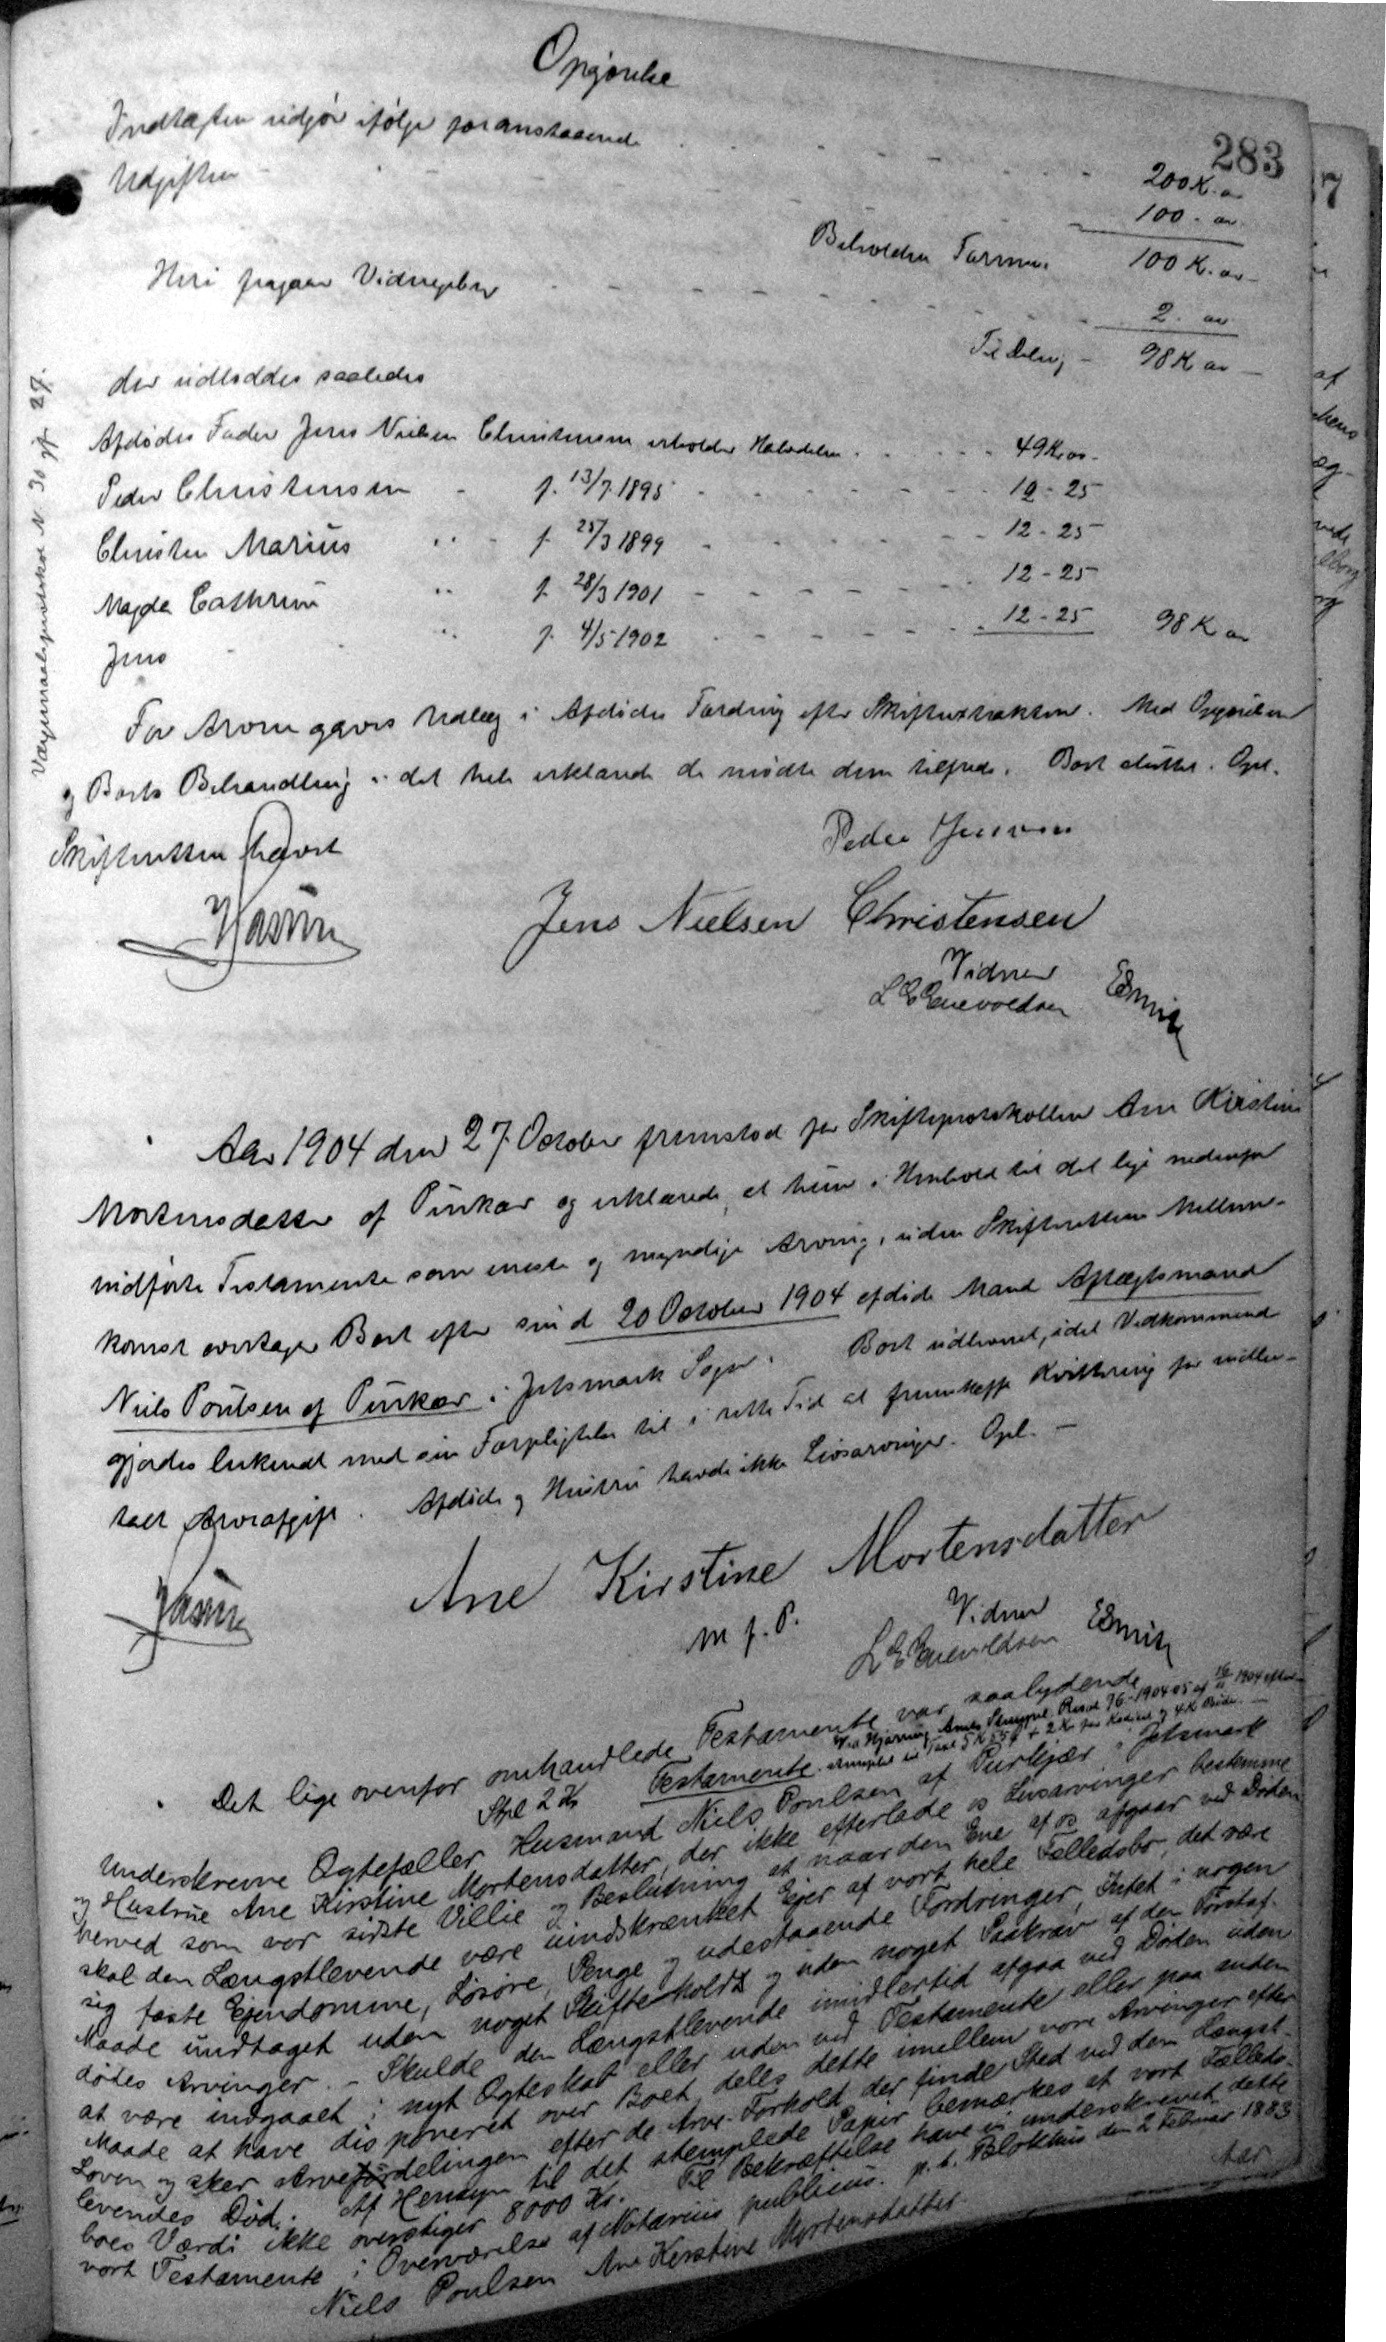 Opgjørelse
283
Indtægten udgjør ifølge foranstaaende 200 K. ør
Udgiften 100 - ør
Beholden Formue 100 K. ør
Heri fragaar Vidnegebyr 2. ør
Til Deling 98 K ør
der udloddes saaledes
Afdødes Fader Jens Nielsen Christensen erholder Halvdelen 49 Kr ør
Peder Christensen f. 13/7 1895 12 - 25
Christen Marius " f. 25/3 1899 12 - 25
Magda Cathrine " f. 28/3 1901 12 - 25
Jens " f. 4/5 1902 12 - 25 98 K ør
Værgemaalsprotokol N. 30 jf. 27.
For Arven gaves Udlæg i Afdødes Fordring efter Skifteextrakten. Med Opgjørelsen
og Boets Behandling i det hele erklærede de mødte dem tilfreds. Boet sluttet. Opl.
Skifteretten hævet
Peder Jensen
Jens Nielsen Christensen
Vidner
L E Enevoldsen ESmith
Aar 1904 den 27 October fremstod for Skifteprotokollen Ane Kirstine
Mortensdatter af Purkær og erklærede, at hun i Henhold til det lige nedenfor
indførte Testamente som eneste og myndige Arving, uden Skifterettens Mellem-
komst overtager Boet efter sin d. 20 October 1904 afdøde Mand Aftægtsmand
Niels Poulsen af Purkær i Jetsmark Sogn. Boet udleveret, idet Vedkommende
gjordes bekendt med sin Forpligtelse til i rette Tid at fremskaffe Kvittering for indbe-
talt Arveafgift. Afdøde og Hustru havde ikke Livsarvinger. Opl.
Ane Kirstine Mortensdatter
m f. P.
Vidner
L E Enevoldsen ESmith
Det lige ovenfor omhandlede Testamente var saalydende
Ved Hjørring Amts Stempel. Resol. 76 - 1904-05 af 16/11 1904 efter-
Stpl 2 Kr Testamente. stemplet til Taxt 5 K 55 Ø + 2 Kr for Kodicil og 4 K Bøde.
Underskrevne Ægtefæller Husmand Niels Poulsen af Purkjær i Jetsmark
og Hustrue Ane Kirstine Mortensdatter, der ikke efterlade os Livsarvinger bestemme
herved som vor sidste Villie og Beslutning at naar den Ene af os afgaar ved Døden
skal den Længstlevende være uindskrænket Ejer af vort hele Fælledsbo, det være
sig faste Ejendomme, Løsøre, Penge og udestaaende Fordringer, Intet i nogen
Maade undtaget uden noget Skifteholdt og uden noget Paakrav af den Førstaf-
dødes Arvinger. - Skulde den Længstlevende imidlertid afgaa ved Døden uden
at være indgaaet i nyt Ægteskab eller uden ved Testamente eller paa anden
Maade at have disponeret over Boet, deles dette imellem vore Arvinger efter
Loven og sker Arvefordelingen efter de Arve-Forhold der finde Sted ved den Længst-
levendes Død. Af Hensyn til det stemplede Papir bemærkes at vort Fælleds-
boes Værdi ikke overstiger 8000 Kr. Til Bekræftelse have vi underskrevet dette
vort Testamente i Overværelse af Notarius publicus. p. t. Blokhus den 2 Februar 1883
Niels Poulsen Ane Kirstine Mortensdatter